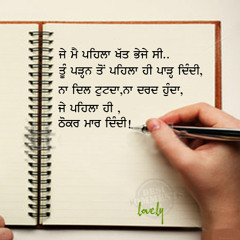 ਜੇ ਮੈ ਪਹਿਲਾ ਖੱਤ ਭੇਜੇ ਸੀ..
ਤੂੰ ਪੜਨ ਤੋਂ ਪਹਿਲਾ ਹੀ ਪਾੜ੍ਹ ਦਿੰਦੀ,
ਨਾ ਦਿਲ ਟੁਟਦਾ,ਨਾ ਦਰਦ ਹੁੰਦਾ,
ਜੇ ਪਹਿਲਾ ਹੀ ,
ਠੋਕਰ ਮਾਰ ਦਿੰਦੀ!
lovely